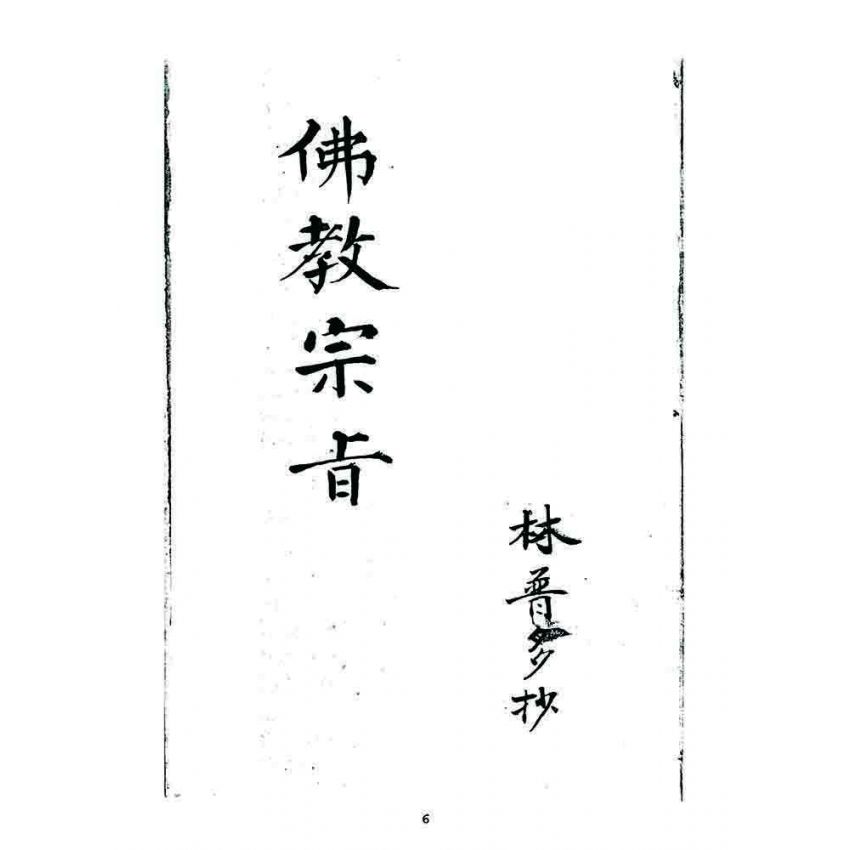 林普多抄
佛教宗旨
6